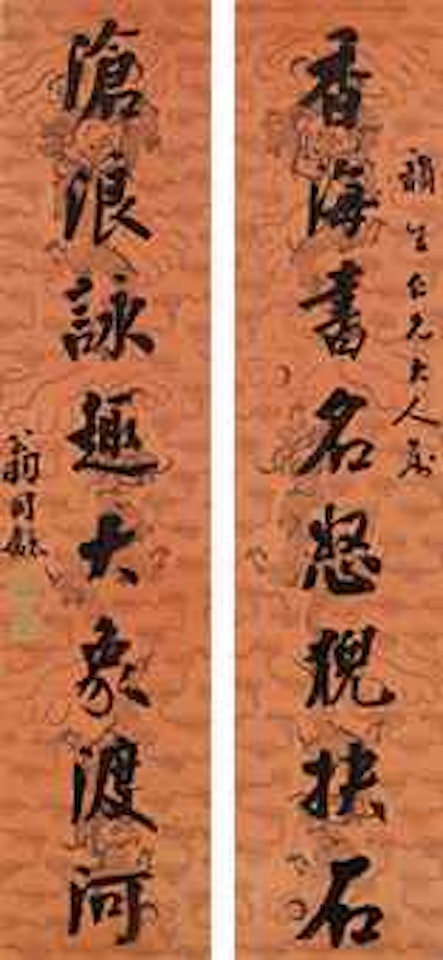 生仁兄大人屬
香海書名怒猊抉石
滄浪詠趣大象渡河
翁同龢